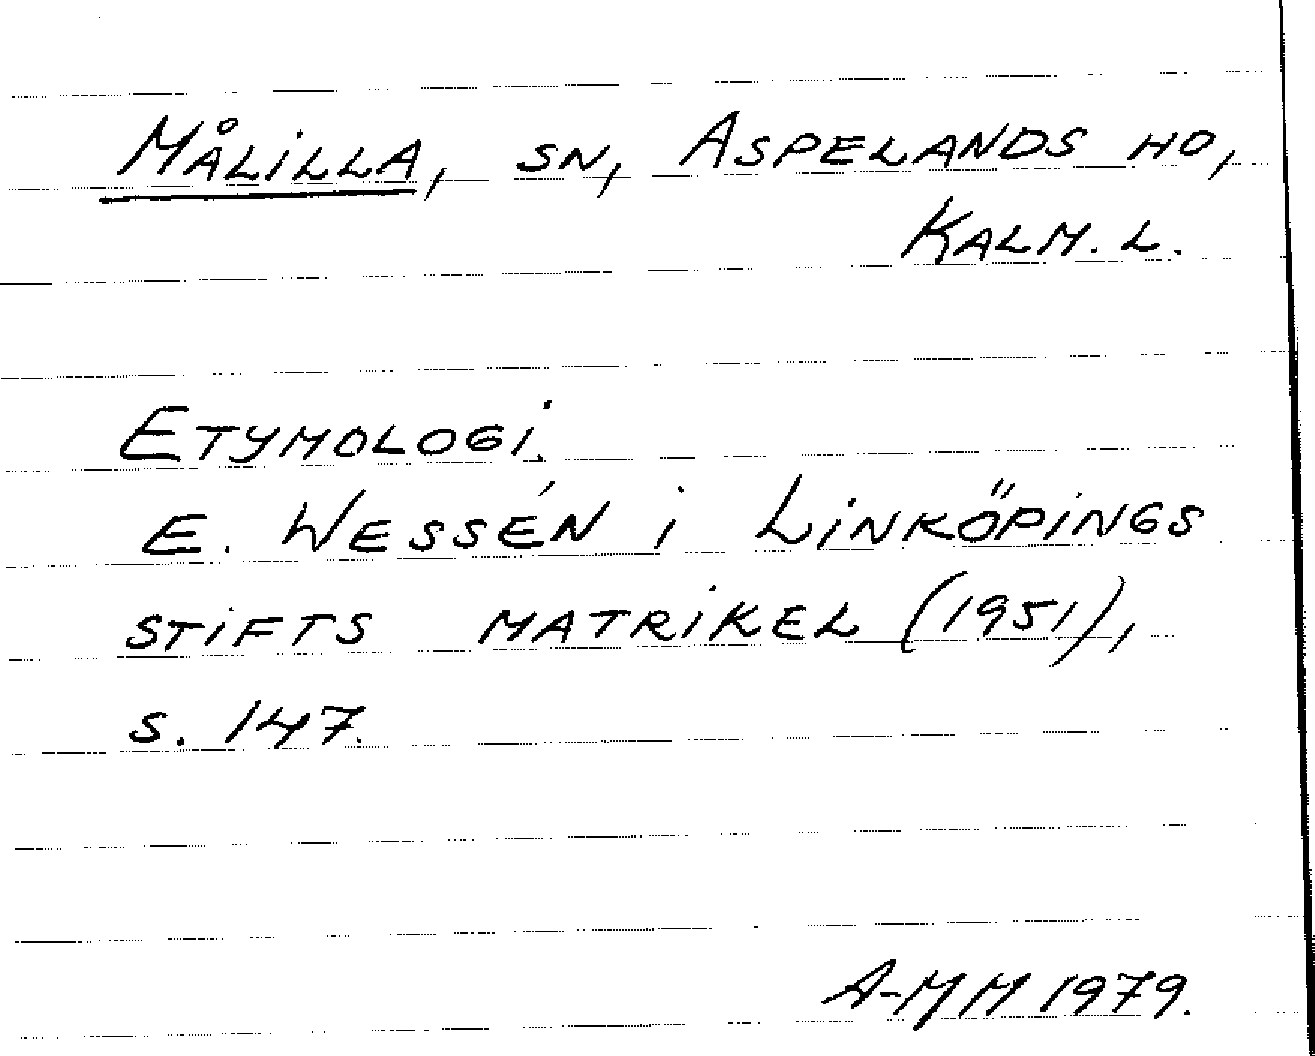 Målilla, sn, Aspelands hd,
Kalm. l.
Etymologi.
E. Wessén i Linköpings
stifts matrikel (1951),
s. 147.
A-MM 1979.